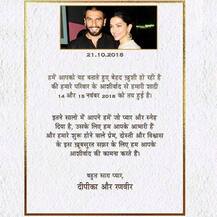 21.10.2018
हमें आपको यह बताते हुए बेहद ख़ुशी हो रही है
की हमारे परिवार के आशीर्वाद से हमारी शादी
14 और 15 नवंबर 2018 को तय हुई है।
इतने सालों में आपने हमें जो प्यार और स्नेह
दिया है, उसके लिए हम आपके आभारी हैं
और हमारे शुरू होने वाले प्रेम, दोस्ती और विश्वास
के इस ख़ूबसूरत सफ़र के लिए हम आपके
आशीर्वाद की कामना करते हैं।
बहुत सारा प्यार,
दीपिका और रणवीर